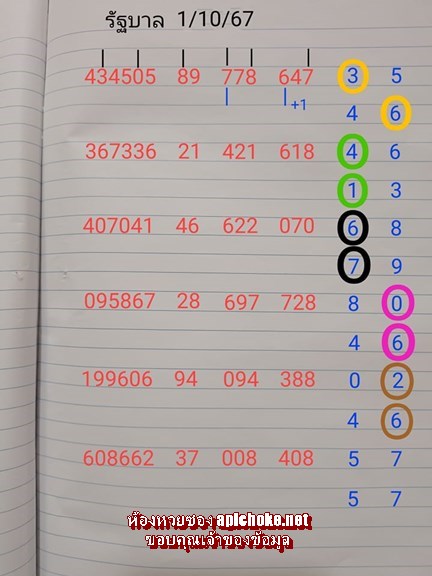 รัฐบาล 1/10/67
434505 89 778 647 3 5
+1
4 6
367336 21 421 618 4 6
1 3
407041 46 622 070 6 8
7 9
095867 28 697 728 8 0
4 6
199606 94 094 388 0 2
4 6
608662 37 008 408 5 7
5 7
ห้องหวยซอง apichoke.net
ขอบคุณเจ้าของข้อมูล